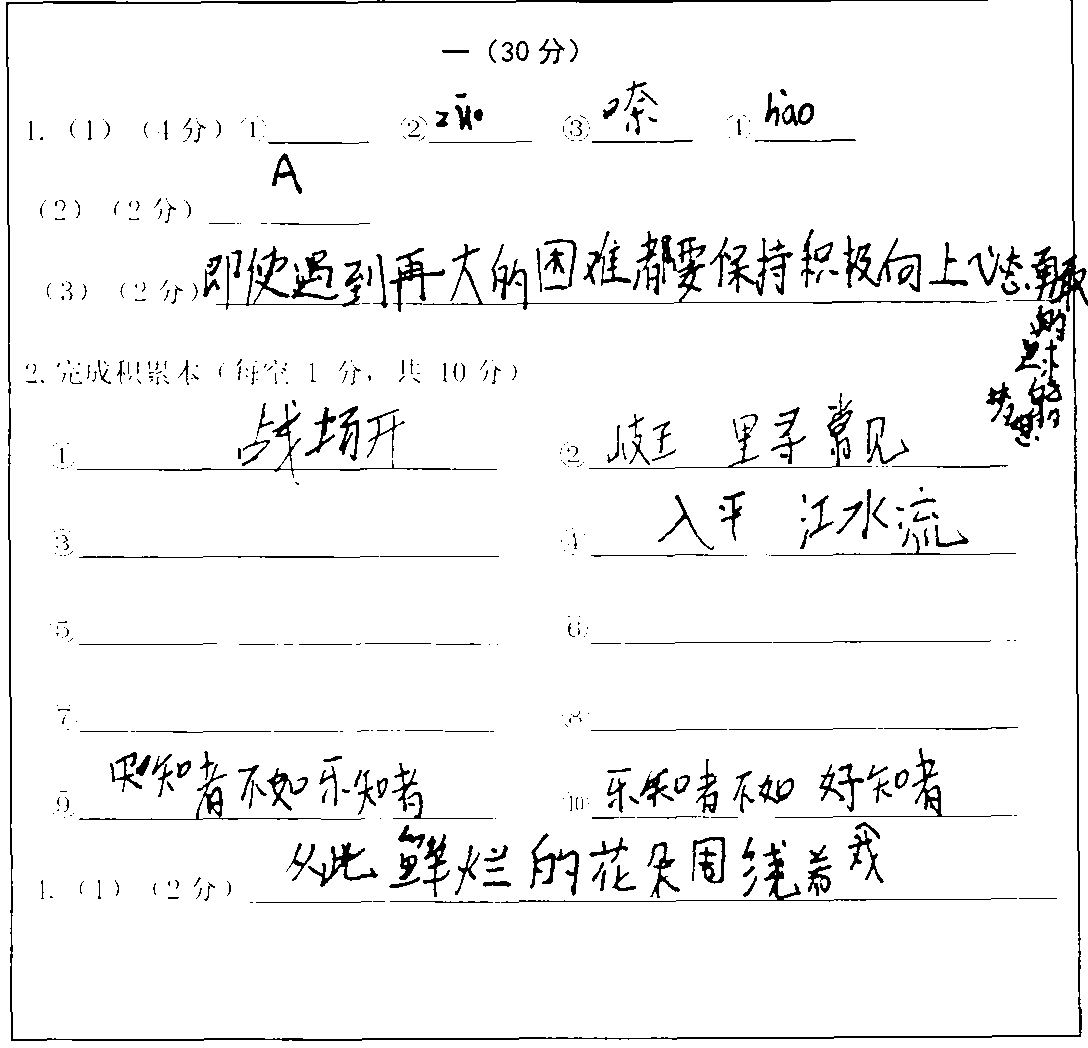 一（30分）
1.（1）（4分）①______ ②zūo ③嗦 ④hào
（2）（2分）A
（3）（2分）即使遇到再大的困难都要保持积极向上心态勇敢
的
足球
梦想
2.完成积累本（每空 1 分，共 10 分）
① 战场开 ② 岐王 里寻常见
③ ④ 入平 江水流
⑤ ⑥
⑦ ⑧
⑨ 知者不如乐知者 ⑩ 乐知者不如 好知者
4.（1）（2分）从此鲜烂的花朵周绕着我